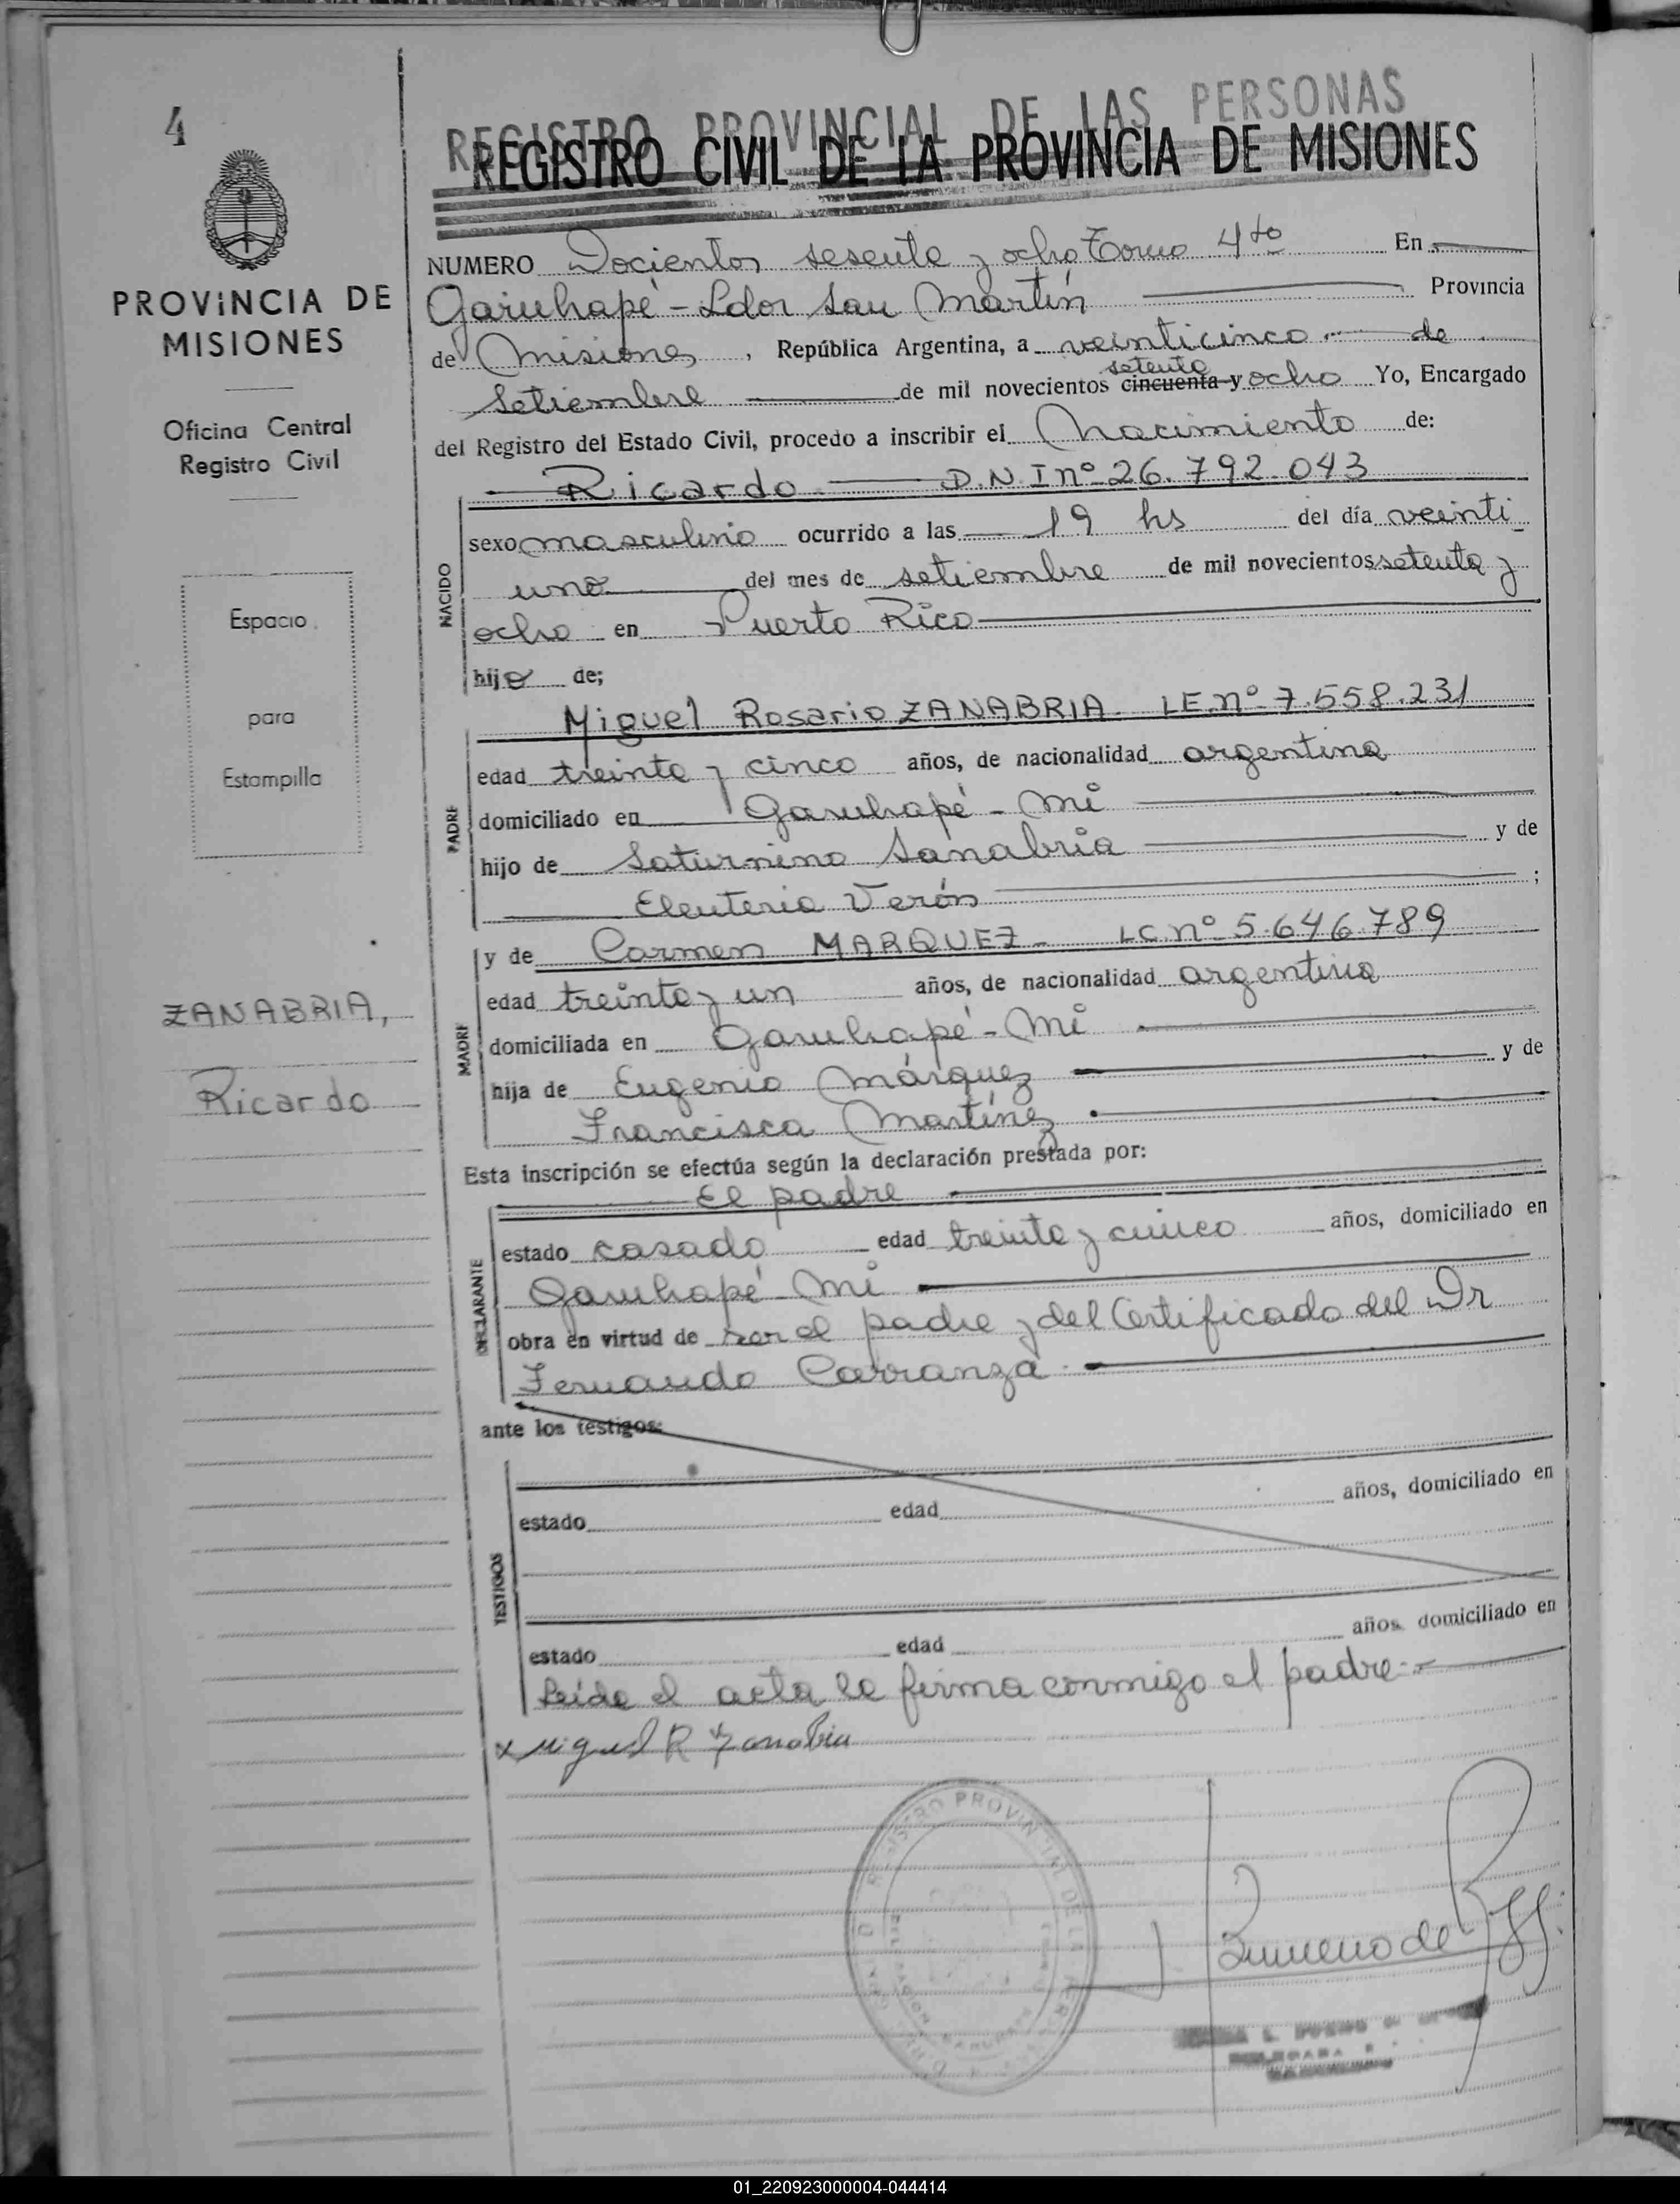 4
PROVINCIA DE
MISIONES
Oficina Central
Registro Civil
Espacio
para
Estampilla
ZANABRIA,
Ricardo
REGISTRO PROVINCIAL DE LAS PERSONAS
REGISTRO CIVIL DE LA PROVINCIA DE MISIONES
NUMERO Docientos sesenta y ocho Tomo 4to En
Garuhapé - Ldor San Martín Provincia
de Misiones, República Argentina, a veinticinco de
setenta
Setiembre de mil novecientos cincuenta y ocho Yo, Encargado
del Registro del Estado Civil, procedo a inscribir el Nacimiento de:
Ricardo D.N.I nº 26.792.043
NACIDO
sexo masculino ocurrido a las 19 hs del día veinti
uno del mes de setiembre de mil novecientos setenta y
ocho en Puerto Rico
hijo de;
PADRE
Miguel Rosario ZANABRIA LE.nº 7.558.231
edad treinta y cinco años, de nacionalidad argentina
domiciliado en Garuhapé - Mi
hijo de Saturnino Sanabria y de
Eleuteria Verón ;
MADRE
y de Carmen MARQUEZ - LC.nº 5.646.789
edad treinta y un años, de nacionalidad argentina
domiciliada en Garuhapé - Mi
hija de Eugenio Márquez y de
Francisca Martínez
Esta inscripción se efectúa según la declaración prestada por:
El padre
DECLARANTE
estado casado edad treinta y cinco años, domiciliado en
Garuhapé - Mi
obra en virtud de ser el padre y del Certificado del Dr
Fernando Carranza
ante los testigos:
TESTIGOS
estado edad años, domiciliado en
estado edad años, domiciliado en
Leída el acta la firma conmigo el padre
x Miguel R Zanabria
REGISTRO PROVINCIAL DE LA
01_220923000004-044414